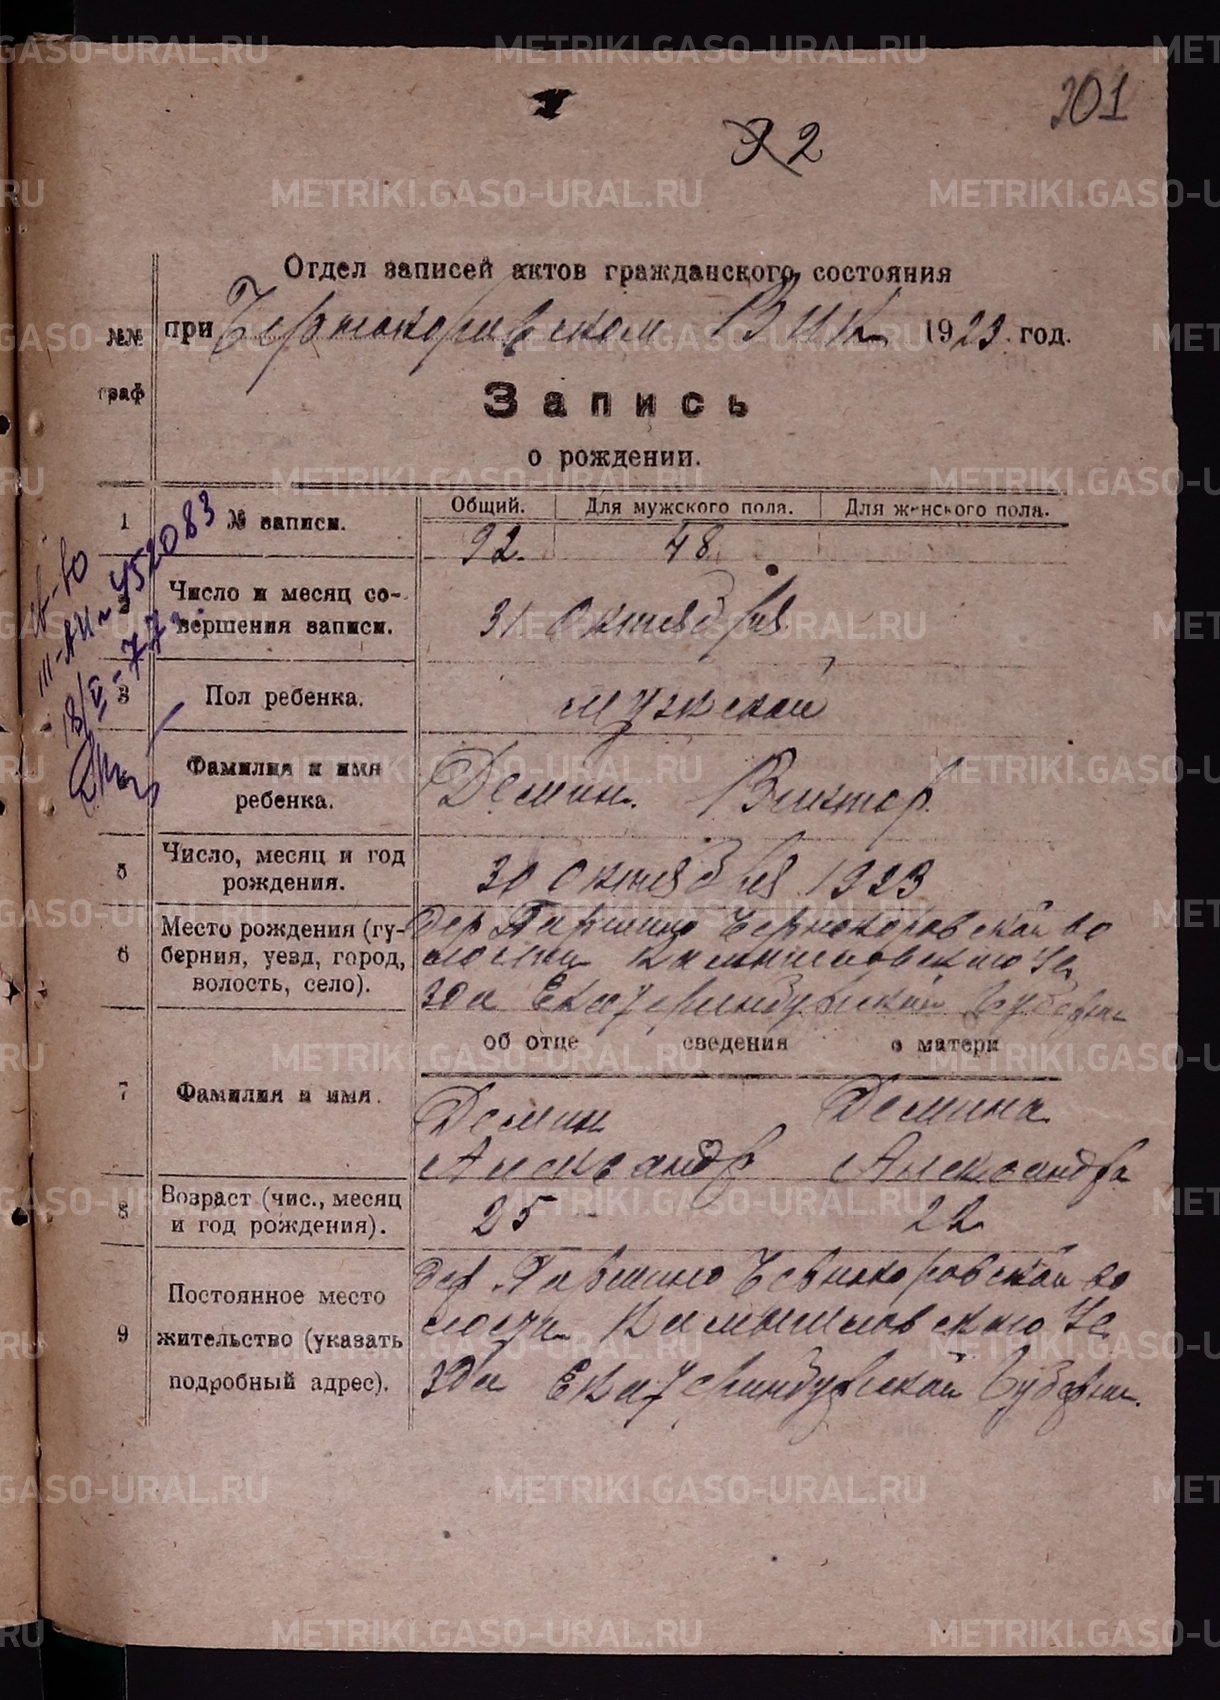 201
92
Отдел записей актов гражданского состояния
№№ при Чернокоровском ВИК 1923 год.
граф
Запись
о рождении.
Общий. Для мужского пола. Для женского пола.
1 № записи. 92. 48
Число и месяц со-
вершения записи. 31 Октября
3 Пол ребенка. мужской
Фамилия и имя
ребенка. Демин. Виктор
5 Число, месяц и год
рождения. 30 Октября 1923
6 Место рождения (гу-
берния, уезд, город,
волость, село).
дер Паршино Чернокоровской во
лости Камышловского Уе
зда Екатеринбургской Губерни
об отце сведения о матери
7 Фамилия и имя.
Демин Демина
Александр Александра
8 Возраст (чис., месяц
и год рождения). 25 22
9 Постоянное место
жительство (указать
подробный адрес).
дер Паршино Чернокоровской во
лости Камышловского Уе
зда Екатеринбургской Губерни.
св-во
III-АИ № 452083
18/V-77г.
METRIKI.GASO-URAL.RU